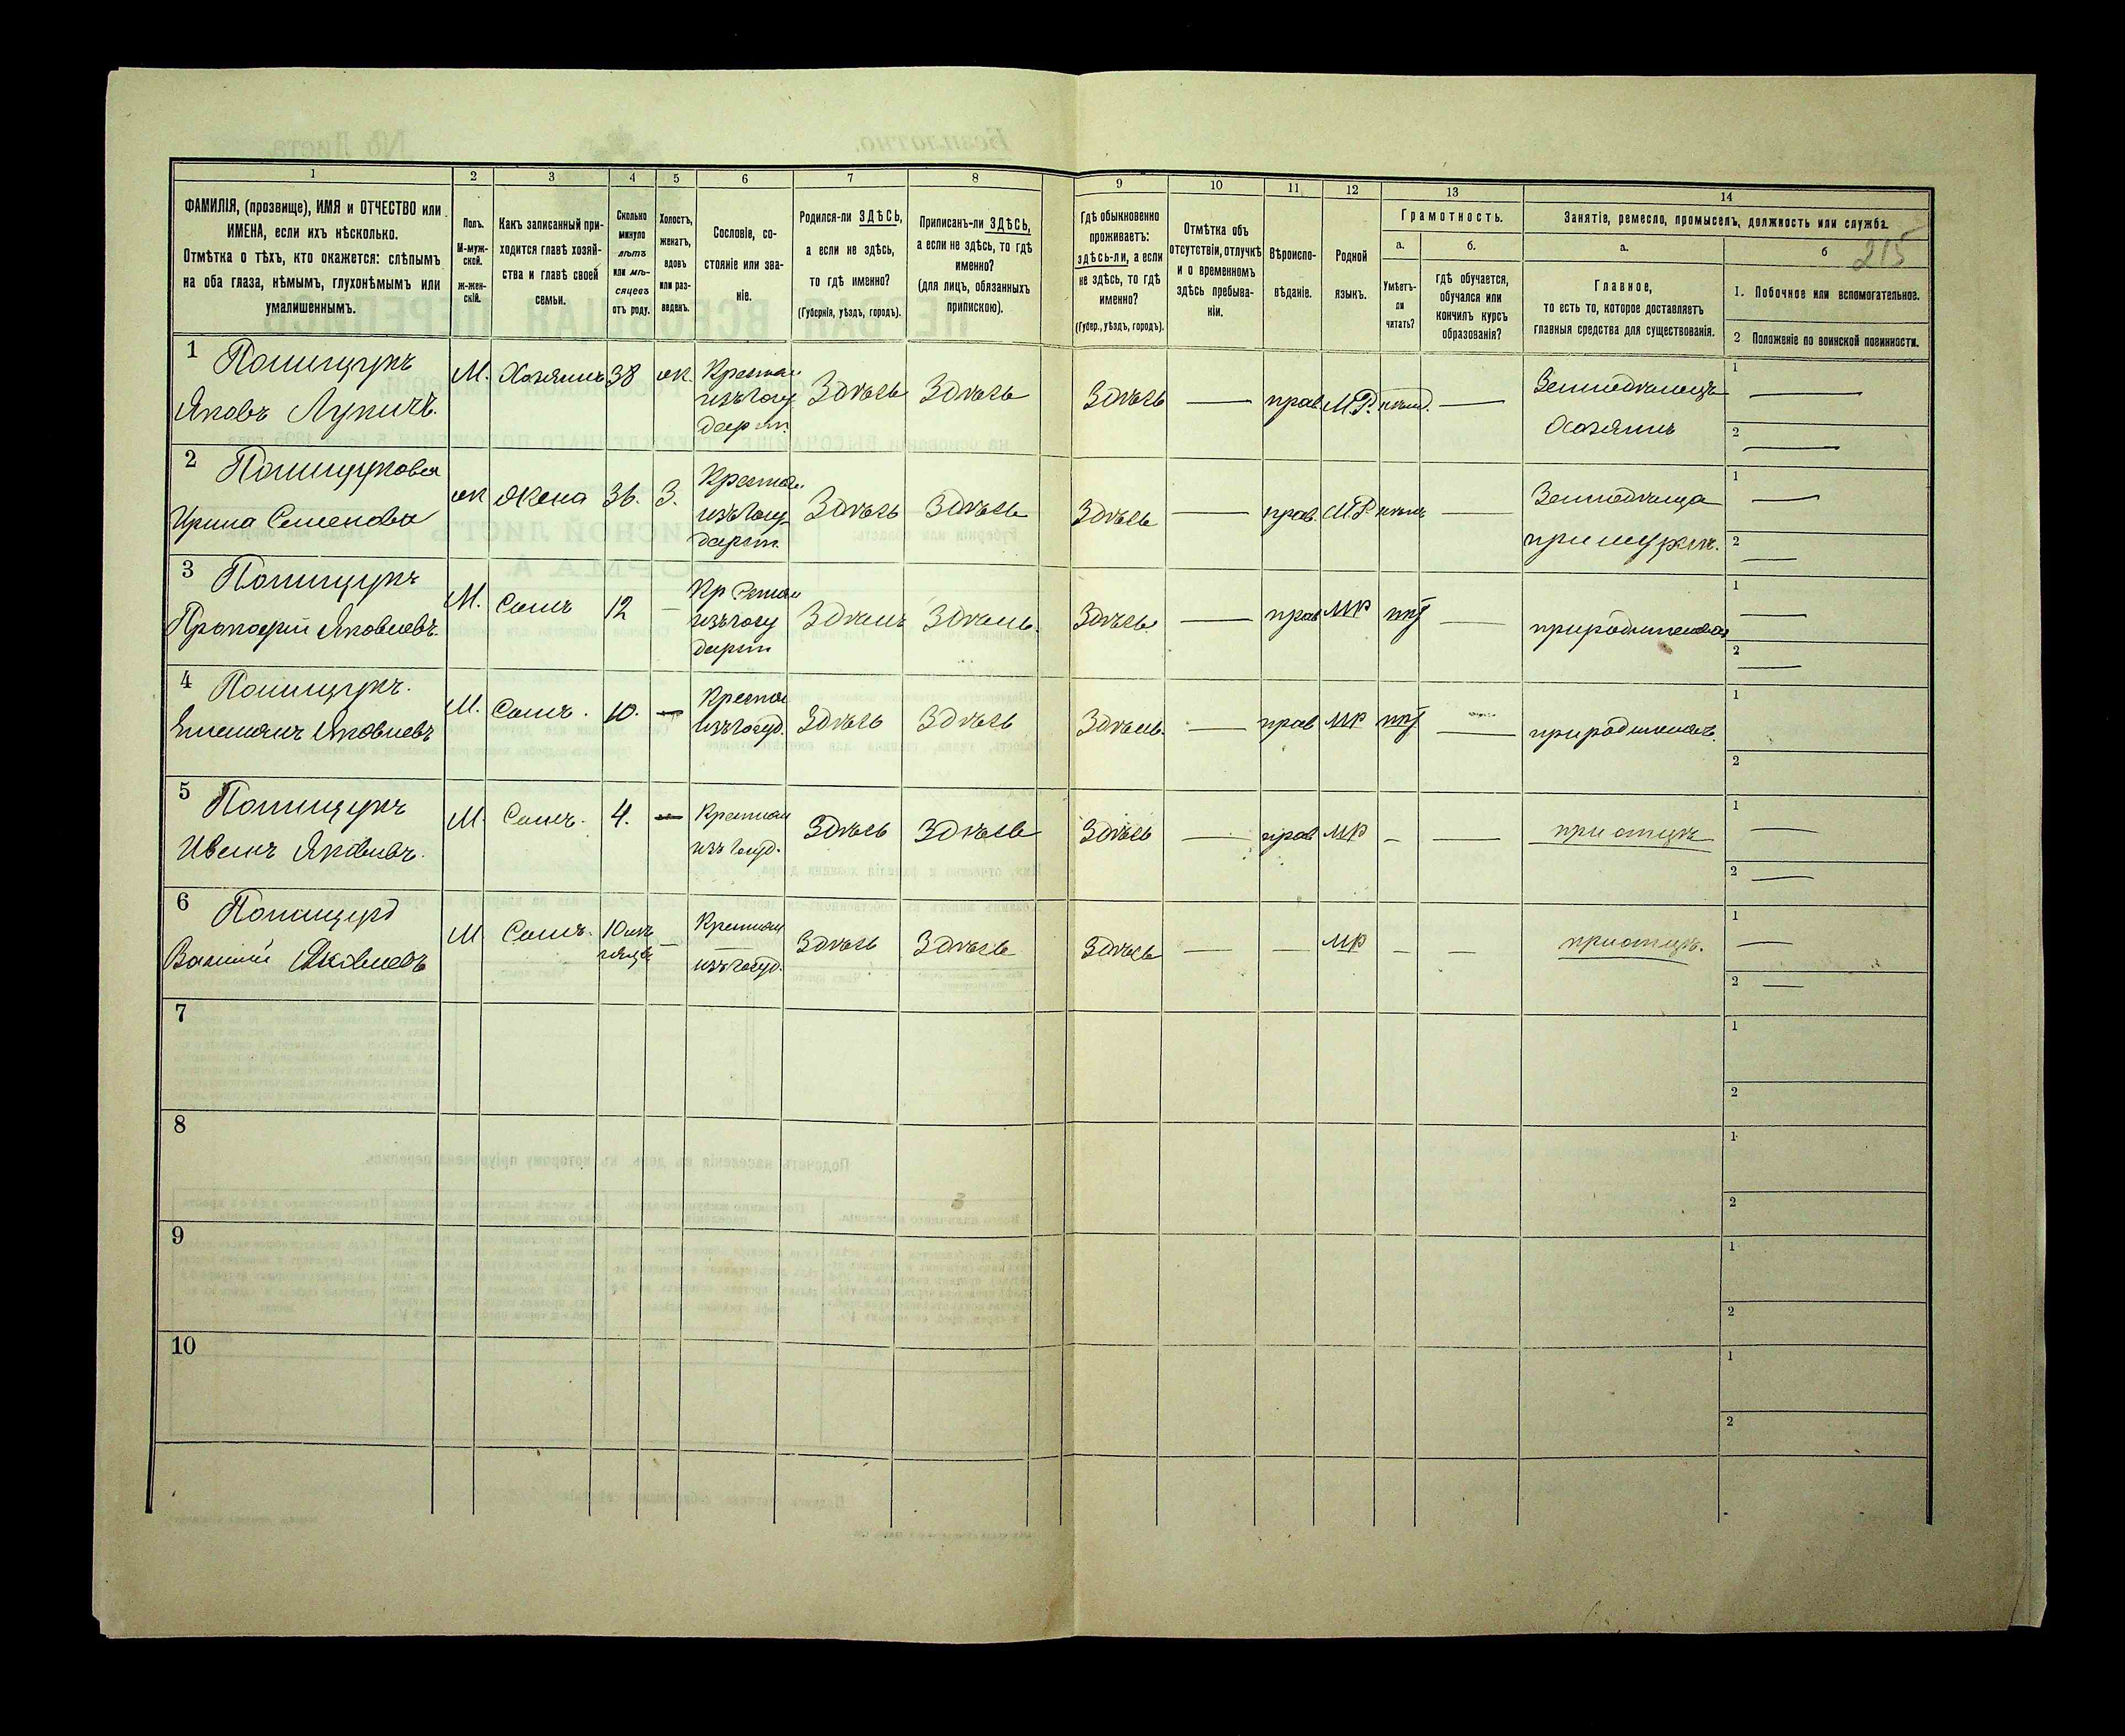 1 2 3 4 5 6 7 8 9 10 11 12 13 14
ФАМИЛІЯ, (прозвище), ИМЯ и ОТЧЕСТВО или
ИМЕНА, если ихъ нѣсколько.
Отмѣтка о тѣхъ, кто окажется: слѣпымъ
на оба глаза, нѣмымъ, глухонѣмымъ или
умалишеннымъ.
Полъ.
М-муж-
ской.
ж-жен-
скій.
Какъ записанный при-
ходится главѣ хозяй-
ства и главѣ своей
семьи.
Сколько
минуло
лѣтъ
или мѣ-
сяцевъ
отъ роду.
Холостъ,
женатъ,
вдовъ
или раз-
веденъ.
Сословіе, со-
стояніе или зва-
ніе.
Родился-ли ЗДѢСЬ,
а если не здѣсь,
то гдѣ именно?
(Губернія, уѣздъ, городъ).
Приписанъ-ли ЗДѢСЬ,
а если не здѣсь, то гдѣ
именно?
(для лицъ, обязанныхъ
припискою).
Гдѣ обыкновенно
проживаетъ:
здѣсь-ли, а если
не здѣсь, то гдѣ
именно?
(Губер., уѣздъ, городъ).
Отмѣтка объ
отсутствіи, отлучкѣ
и о временномъ
здѣсь пребыва-
ніи.
Вѣроиспо-
вѣданіе.
Родной
языкъ.
Грамотность.
а.
Умѣетъ-
ли
читать?
б.
гдѣ обучается,
обучался или
кончилъ курсъ
образованія?
Занятіе, ремесло, промыселъ, должность или служба.
а.
Главное,
то есть то, которое доставляетъ
главныя средства для существованія.
б
215
1. Побочное или вспомогательное.
2 Положеніе по воинской повинности.
1 Полищукъ
Яковъ Лукичъ.
М. Хозяинъ 38 ж. Крестья
изъ госу
дарст.
Здѣсь Здѣсь Здѣсь — прав. М.Р. —
Земледѣлецъ
Хозяинъ
1 —
2 —
2 Полищукова
Ирина Семенова
ж Жена 36. З. Крестья
изъ госу
дарст.
Здѣсь Здѣсь Здѣсь — прав. М.Р. —
Земледѣлица
при мужѣ.
1 —
2 —
3 Полищукъ
Прокофій Яковлевъ.
М. Сынъ 12 — Крестья
изъ госу
дарст
Здѣсь Здѣсь. Здѣсь. — прав МР нѣт —
при родителяхъ
1 —
2 —
4 Полищукъ.
Емельянъ Яковлевъ
М. Сынъ. 10. — Крестья
изъ госуд.
Здѣсь Здѣсь Здѣсь. — прав МР нѣт —
при родителяхъ.
1
2
5 Полищукъ
Иванъ Яковлевъ.
М. Сынъ. 4. — Крестья
изъ госуд.
Здѣсь Здѣсь Здѣсь — прав МР — —
при отцѣ
1 —
2 —
6
Яковлевъ
М Сынъ. 10 мѣ
сяцевъ — Крестья
изъ госуд.
Здѣсь Здѣсь Здѣсь — — МР — —
при отцѣ.
1 —
2 —
7
1
2
8
1
2
9
1
2
10
1
2